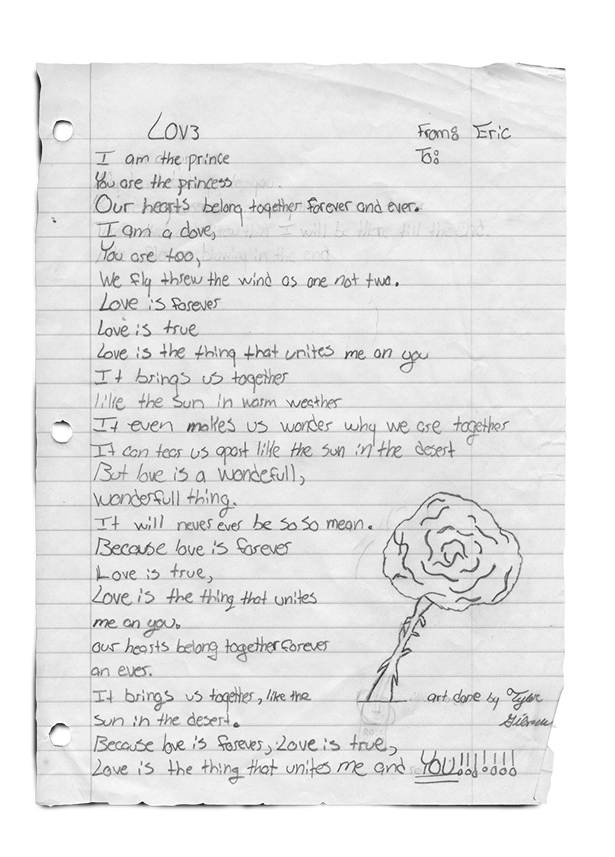 LOV3
From: Eric
To:
I am the prince
You are the princess
Our hearts belong together forever and ever.
I am a dove,
You are too,
We fly threw the wind as one not two.
Love is forever
Love is true
Love is the thing that unites me an you
It brings us together
like the sun in warm weather
It even makes us wonder why we are together
It can tear us apart like the sun in the desert
But love is a wondefull,
wonderfull thing.
It will never ever be so so mean.
Because love is forever
Love is true,
Love is the thing that unites
me an you.
our hearts belong together forever
an ever.
It brings us together, like the
sun in the desert.
art done by Tyler
Because love is forever, Love is true,
Love is the thing that unites me and YOU!!!!!!!!